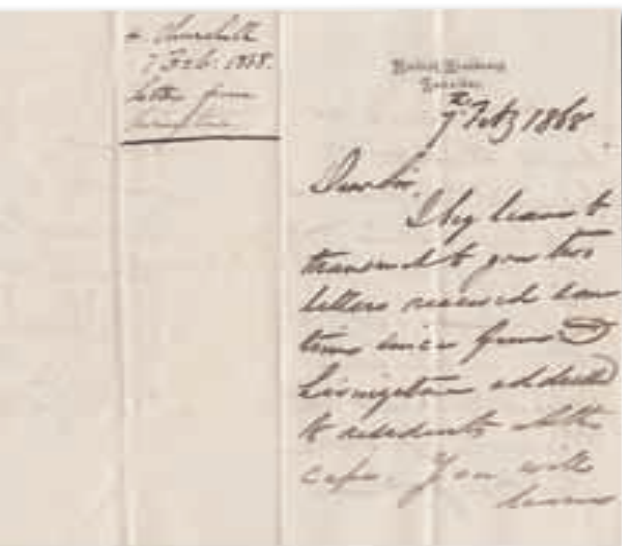 Churchill
7 Feb. 1868.
letter from
Livingstone
British
7th Feby 1868
Dear Sir,
I beg leave to
transmit to you two
letters received some
time since from D
Livingstone addressed
to residents at the
cape. You will